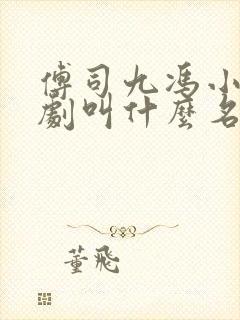 傅司九馮小
劇叫什麼名
董飛